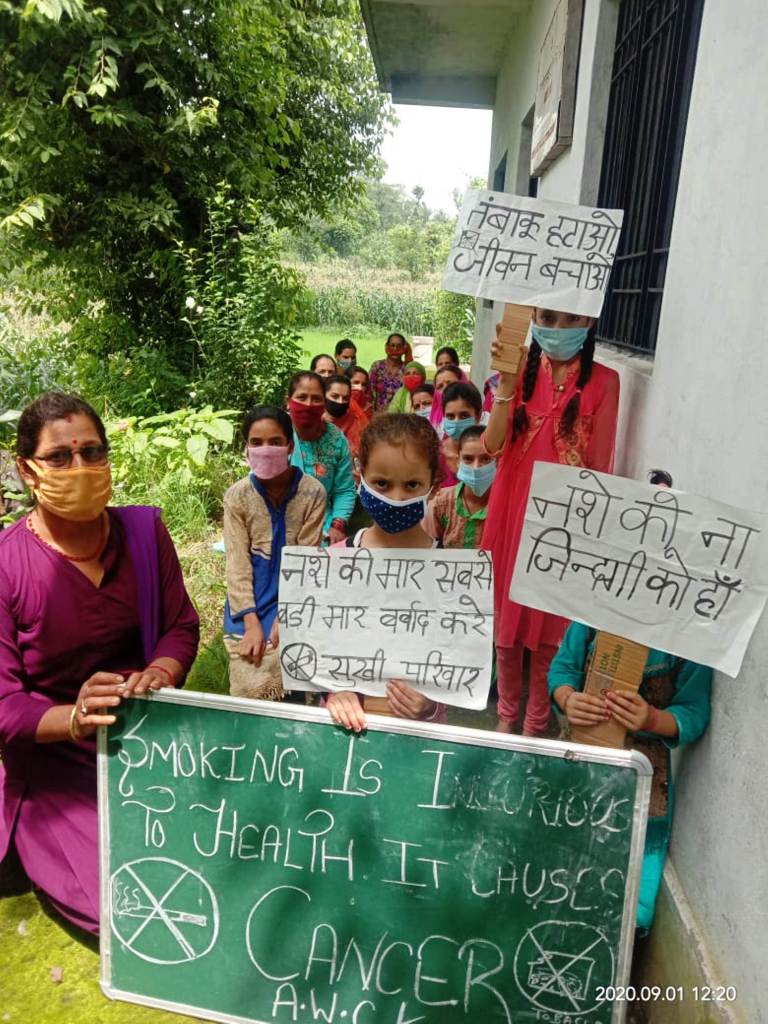 तंबाकू हटाओ
जीवन बचाओ
नशे की मार सबसे
बडी मार बर्वाद करे
सुखी परिवार
नशे को ना
जिन्दगी को हाँ
SMOKING IS INJURIOUS
TO HEALTH. IT CAUSES
CANCER
A.W.C
2020.09.01 12:20